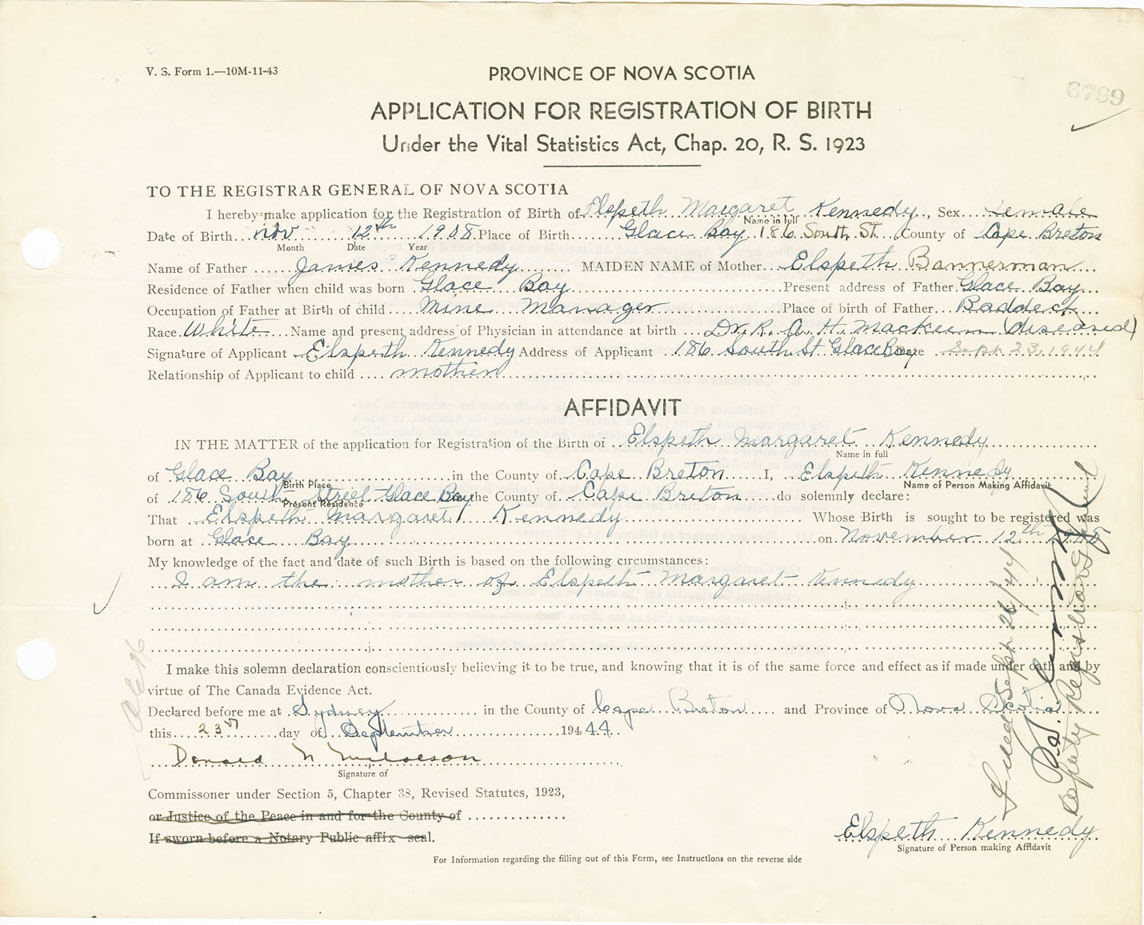 V. S. Form 1.—10M-11-43
PROVINCE OF NOVA SCOTIA
6799
APPLICATION FOR REGISTRATION OF BIRTH
Under the Vital Statistics Act, Chap. 20, R. S. 1923
TO THE REGISTRAR GENERAL OF NOVA SCOTIA
I hereby make application for the Registration of Birth of Elspeth Margaret Kennedy, Sex female
Name in full
Date of Birth nov 12th 1908 Place of Birth Glace Bay 186 South St County of Cape Breton
Month Date Year
Name of Father James Kennedy MAIDEN NAME of Mother Elspeth Bannerman
Residence of Father when child was born Glace Bay Present address of Father Glace Bay
Occupation of Father at Birth of child Mine Manager Place of birth of Father Baddeck
Race White Name and present address of Physician in attendance at birth Dr. R. A. H. Mackeen (diseased)
Signature of Applicant Elspeth Kennedy Address of Applicant 186 South St Glace Bay Sept 23, 1944
Relationship of Applicant to child mother
AFFIDAVIT
IN THE MATTER of the application for Registration of the Birth of Elspeth Margaret Kennedy
Name in full
of Glace Bay in the County of Cape Breton I, Elspeth Kennedy
Birth Place Name of Person Making Affidavit
of 186 South Street Glace Bay the County of Cape Breton do solemnly declare:
Present Residence
That Elspeth Margaret Kennedy Whose Birth is sought to be registered was
born at Glace Bay on November 12th 1908
My knowledge of the fact and date of such Birth is based on the following circumstances:
I am the mother of Elspeth Margaret Kennedy
I make this solemn declaration conscientiously believing it to be true, and knowing that it is of the same force and effect as if made under oath and by
virtue of The Canada Evidence Act.
Declared before me at Sydney in the County of Cape Breton and Province of Nova Scotia
this 23rd day of September 1944
Donald N
Signature of
Commissioner under Section 5, Chapter 38, Revised Statutes, 1923,
or Justice of the Peace in and for the County of
If sworn before a Notary Public affix seal.
Elspeth Kennedy
Signature of Person making Affidavit
For Information regarding the filling out of this Form, see Instructions on the reverse side
Filed Sept 26/44
Deputy Registrar General